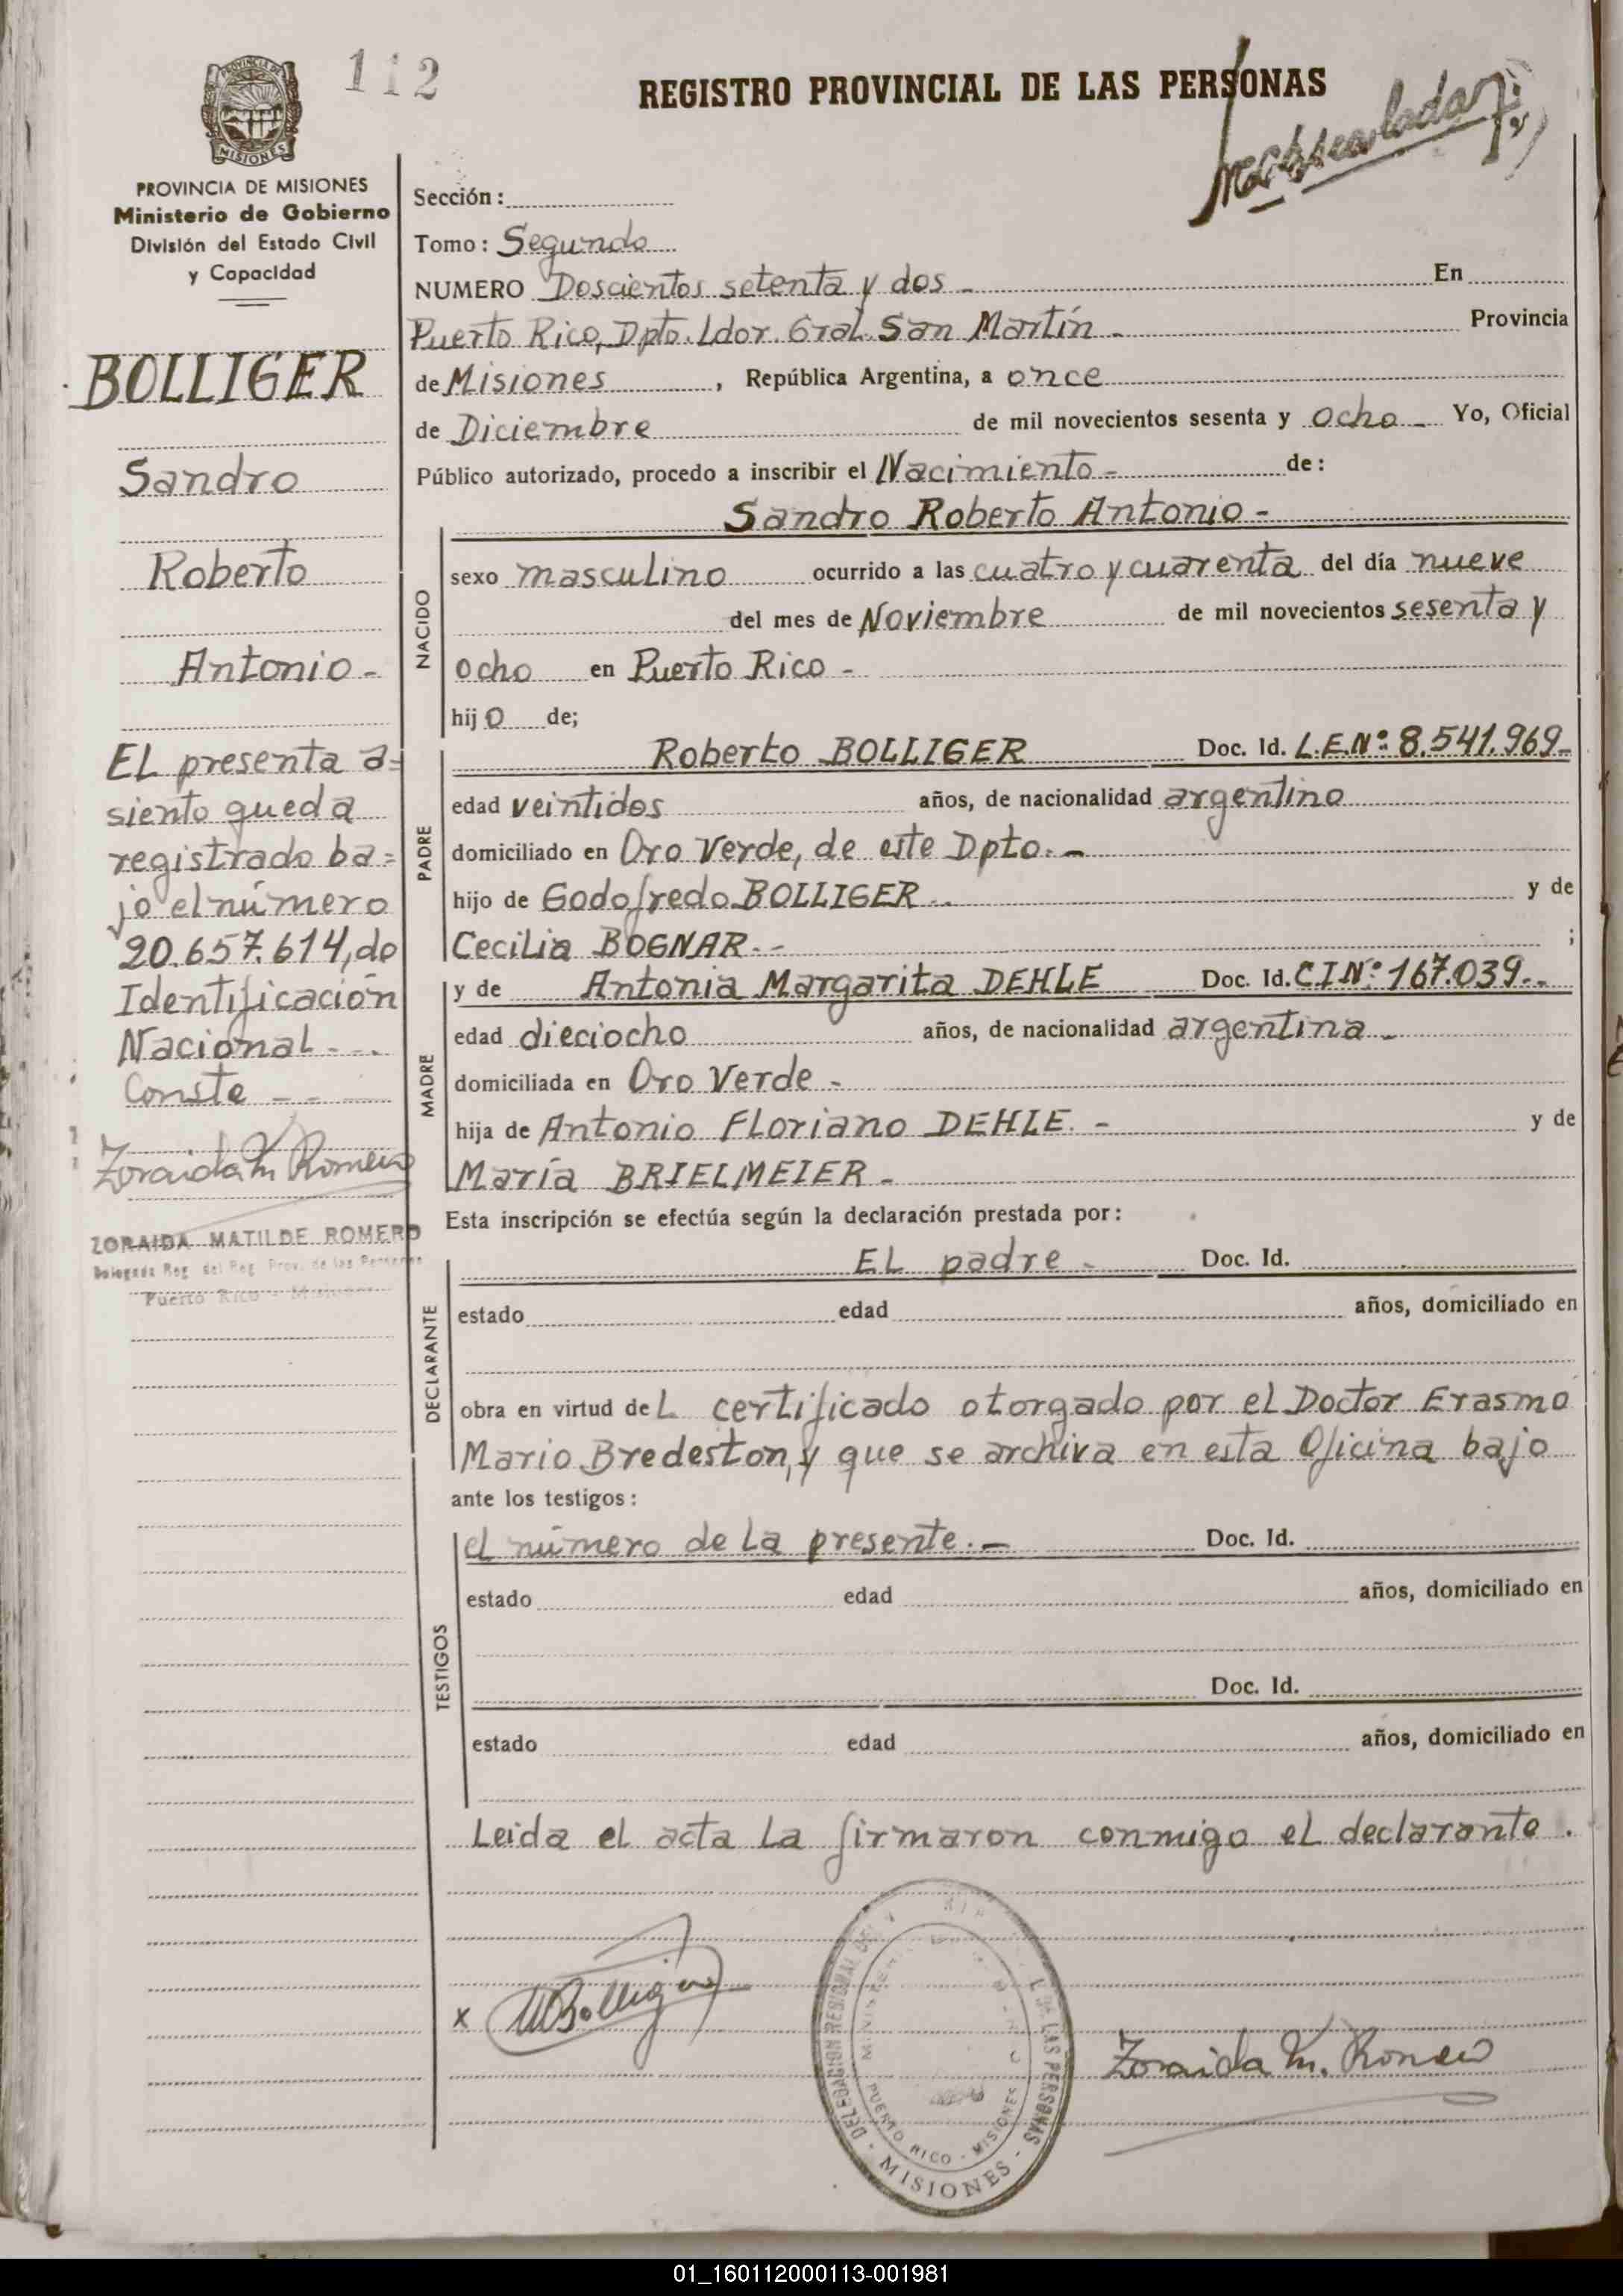 112
REGISTRO PROVINCIAL DE LAS PERSONAS
PROVINCIA DE MISIONES
MISIONES
PROVINCIA DE MISIONES
Ministerio de Gobierno
División del Estado Civil
y Capacidad
BOLLIGER
Sandro
Roberto
Antonio -
EL presenta a=
siento queda
registrado ba=
jo el número
20.657.614, de
Identificación
Nacional - -
Conste - -
Zoraida M Romero
ZORAIDA MATILDE ROMERO
Delegada Reg. del Reg. Prov. de las Personas
Puerto Rico - Misiones
Sección:
Tomo: Segundo
NUMERO Doscientos setenta y dos - En
Puerto Rico, Dpto. Ldor. Gral. San Martín - Provincia
de Misiones, República Argentina, a once
de Diciembre de mil novecientos sesenta y ocho - Yo, Oficial
Público autorizado, procedo a inscribir el Nacimiento - de:
Sandro Roberto Antonio -
NACIDO
sexo masculino ocurrido a las cuatro y cuarenta del día nueve
del mes de Noviembre de mil novecientos sesenta y
ocho en Puerto Rico -
hijo de;
PADRE
Roberto BOLLIGER Doc. Id. L.E.Nº 8.541.969-
edad veintidos años, de nacionalidad argentino
domiciliado en Oro Verde, de este Dpto. -
hijo de Godofredo BOLLIGER - y de
Cecilia BOGNAR. - ;
MADRE
y de Antonia Margarita DEHLE Doc. Id. CINº 167.039.-
edad dieciocho años, de nacionalidad argentina -
domiciliada en Oro Verde -
hija de Antonio Floriano DEHLE. - y de
María BRIELMEIER -
Esta inscripción se efectúa según la declaración prestada por:
DECLARANTE
EL padre - Doc. Id.
estado edad años, domiciliado en
obra en virtud deL certificado otorgado por el Doctor Erasmo
Mario Bredeston, y que se archiva en esta Oficina bajo
ante los testigos:
TESTIGOS
el número de la presente. - Doc. Id.
estado edad años, domiciliado en
Doc. Id.
estado edad años, domiciliado en
Leida el acta la firmaron conmigo el declarante.
x Bolliger
DELEGACION REGIONAL DEL LAS PERSONAS
PUERTO RICO - MISIONES
- MISIONES -
Zoraida M. Romero
01_160112000113-001981